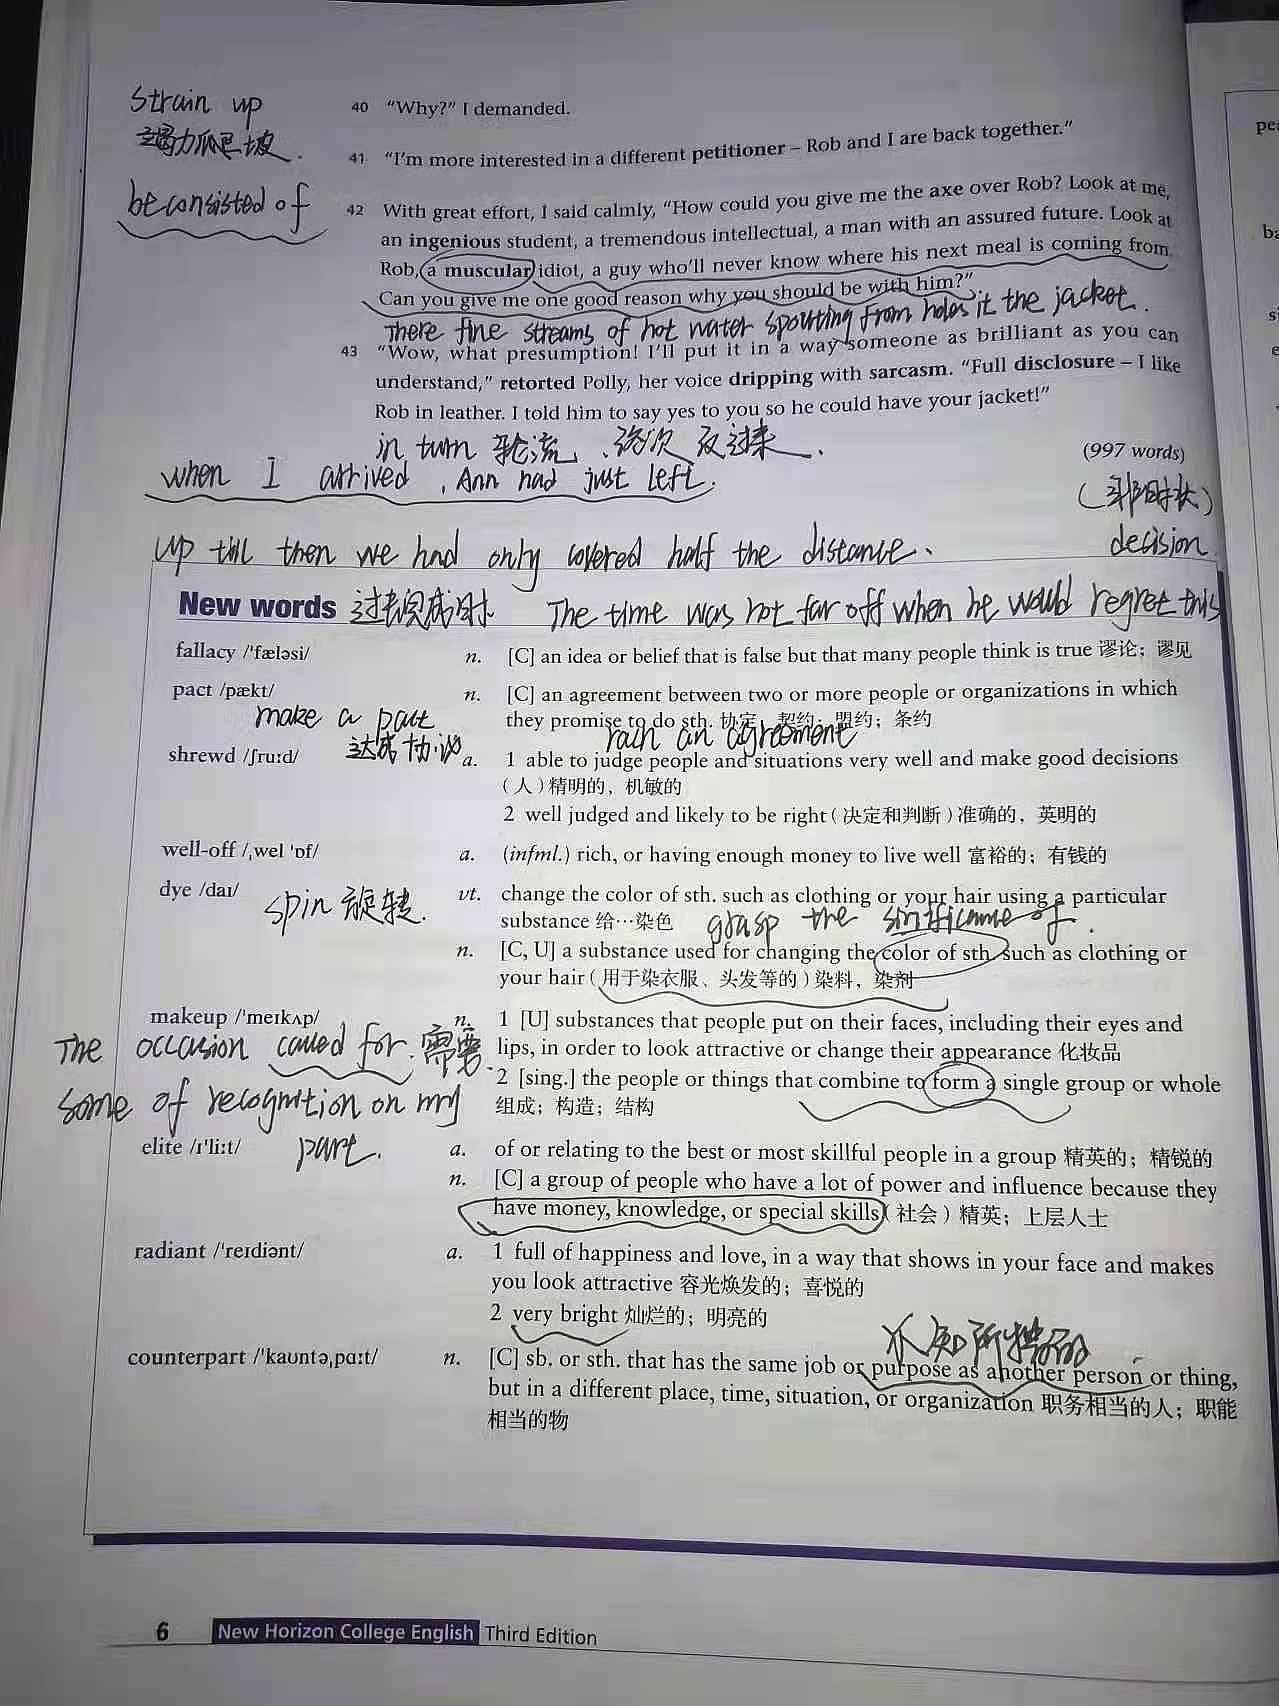 Strain up
竭力爬坡.
be consisted of
40 "Why?" I demanded.
41 "I'm more interested in a different petitioner – Rob and I are back together."
42 With great effort, I said calmly, "How could you give me the axe over Rob? Look at me,
an ingenious student, a tremendous intellectual, a man with an assured future. Look at
Rob, a muscular idiot, a guy who'll never know where his next meal is coming from.
Can you give me one good reason why you should be with him?"
There fine streams of hot water spouting from holes it the jacket.
43 "Wow, what presumption! I'll put it in a way someone as brilliant as you can
understand," retorted Polly, her voice dripping with sarcasm. "Full disclosure – I like
Rob in leather. I told him to say yes to you so he could have your jacket!"
in turn 轮流、依次 反过来.
(997 words)
when I arrived, Ann had just left.
up till then we had only covered half the distance.
decision
New words 过去完成时
The time was not far off when he would regret this
fallacy /ˈfæləsi/ n. [C] an idea or belief that is false but that many people think is true 谬论；谬见
pact /pækt/ n. [C] an agreement between two or more people or organizations in which
they promise to do sth. 协定；契约；盟约；条约
make a pact
达成协议
an agreement
shrewd /ʃruːd/ a. 1 able to judge people and situations very well and make good decisions
（人）精明的，机敏的
2 well judged and likely to be right（决定和判断）准确的，英明的
well-off /ˌwel ˈɒf/ a. (infml.) rich, or having enough money to live well 富裕的；有钱的
dye /daɪ/ vt. change the color of sth. such as clothing or your hair using a particular
substance 给…染色
spin 旋转.
grasp the of.
n. [C, U] a substance used for changing the color of sth. such as clothing or
your hair（用于染衣服、头发等的）染料，染剂
makeup /ˈmeɪkʌp/ n. 1 [U] substances that people put on their faces, including their eyes and
lips, in order to look attractive or change their appearance 化妆品
The occasion called for 需要.
2 [sing.] the people or things that combine to form a single group or whole
组成；构造；结构
some of recognition on my
part.
elite /ɪˈliːt/ a. of or relating to the best or most skillful people in a group 精英的；精锐的
n. [C] a group of people who have a lot of power and influence because they
have money, knowledge, or special skills（社会）精英；上层人士
radiant /ˈreɪdiənt/ a. 1 full of happiness and love, in a way that shows in your face and makes
you look attractive 容光焕发的；喜悦的
2 very bright 灿烂的；明亮的
不知所措的
counterpart /ˈkaʊntəˌpɑːt/ n. [C] sb. or sth. that has the same job or purpose as another person or thing,
but in a different place, time, situation, or organization 职务相当的人；职能
相当的物
6 New Horizon College English Third Edition